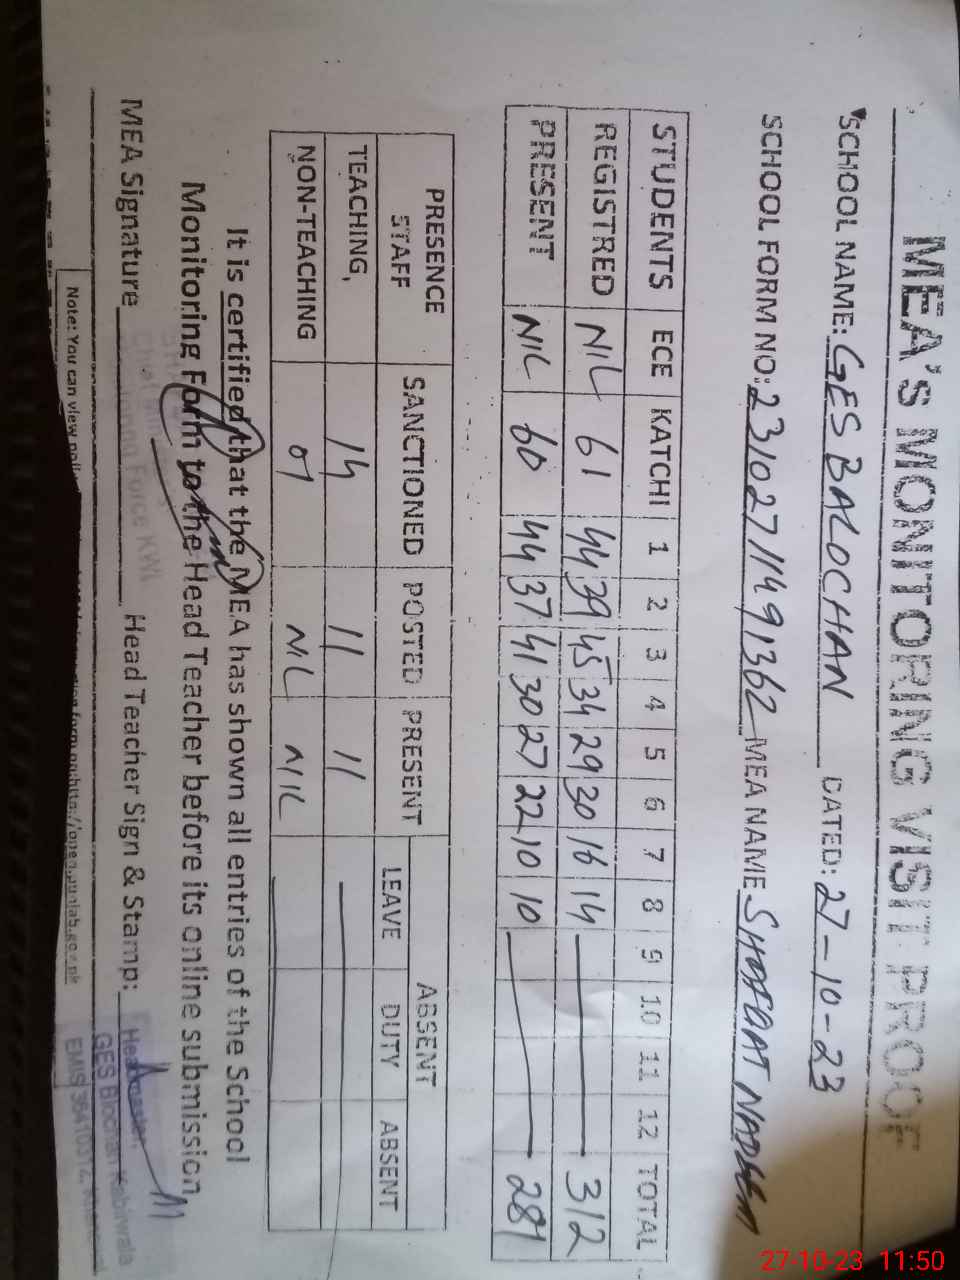 MEA'S MONITORING VISIT PROOF
SCHOOL NAME: GES BALOCHAN DATED: 27-10-23
SCHOOL FORM NO: 2310271149 1362 MEA NAME SHAFQAT NADEEM
STUDENTS ECE KATCHI 1 2 3 4 5 6 7 8 9 10 11 12 TOTAL
REGISTRED NIL 61 44 39 45 34 29 30 16 14 312
PRESENT NIL 60 44 37 41 30 27 22 10 10 281
PRESENCE STAFF SANCTIONED POSTED PRESENT ABSENT
LEAVE DUTY ABSENT
TEACHING, 14 11 11
NON-TEACHING 01 NIL NIL
It is certified that the MEA has shown all entries of the School
Monitoring Form to the Head Teacher before its online submission
MEA Signature Head Teacher Sign & Stamp:
Headmaster
GES Blochan Kabirwala
EMIS 36410314,
Note: You can view
http://open.punjab.gov.pk
27-10-23 11:50